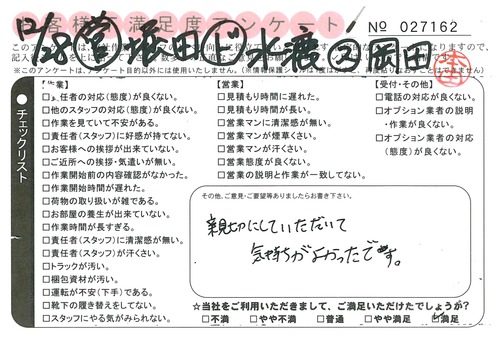 お客様不満足度アンケート
№ 027162
12/28 営 堀田 ド 水渡 2 岡田
※このアンケートは、アンケート目的以外には使用いたしません。
チェックリスト
【作業】
□責任者の対応(態度)が良くない。
□他のスタッフの対応(態度)が良くない。
□作業を見ていて不安がある。
□責任者(スタッフ)に好感が持てない。
□お客様への挨拶が出来ていない。
□ご近所への挨拶・気遣いが無い。
□作業開始前の内容確認がなかった。
□作業開始時間が遅れた。
□荷物の取り扱いが雑である。
□お部屋の養生が出来ていない。
□作業時間が長すぎる。
□責任者(スタッフ)に清潔感が無い。
□責任者(スタッフ)が汗くさい。
□トラックが汚い。
□梱包資材が汚い。
□運転が不安(下手)である。
□靴下の履き替えをしてない。
□スタッフにやる気がみられない。
【営業】
□見積もり時間に遅れた。
□見積もり時間が長い。
□営業マンに清潔感が無い。
□営業マンが煙草くさい。
□営業マンが汗くさい。
□営業態度が良くない。
□営業の説明と作業が一致してない。
【受付・その他】
□電話の対応が良くない。
□オプション業者の説明
・作業が良くない。
□オプション業者の対応
(態度)が良くない。
その他、ご意見・ご要望等ありましたらお書き下さい。
親切にしていただいて
気持ちがよかったです。
☆当社をご利用いただきまして、ご満足いただけたでしょうか?
□不満 □やや不満 □普通 □やや満足 ☑満足